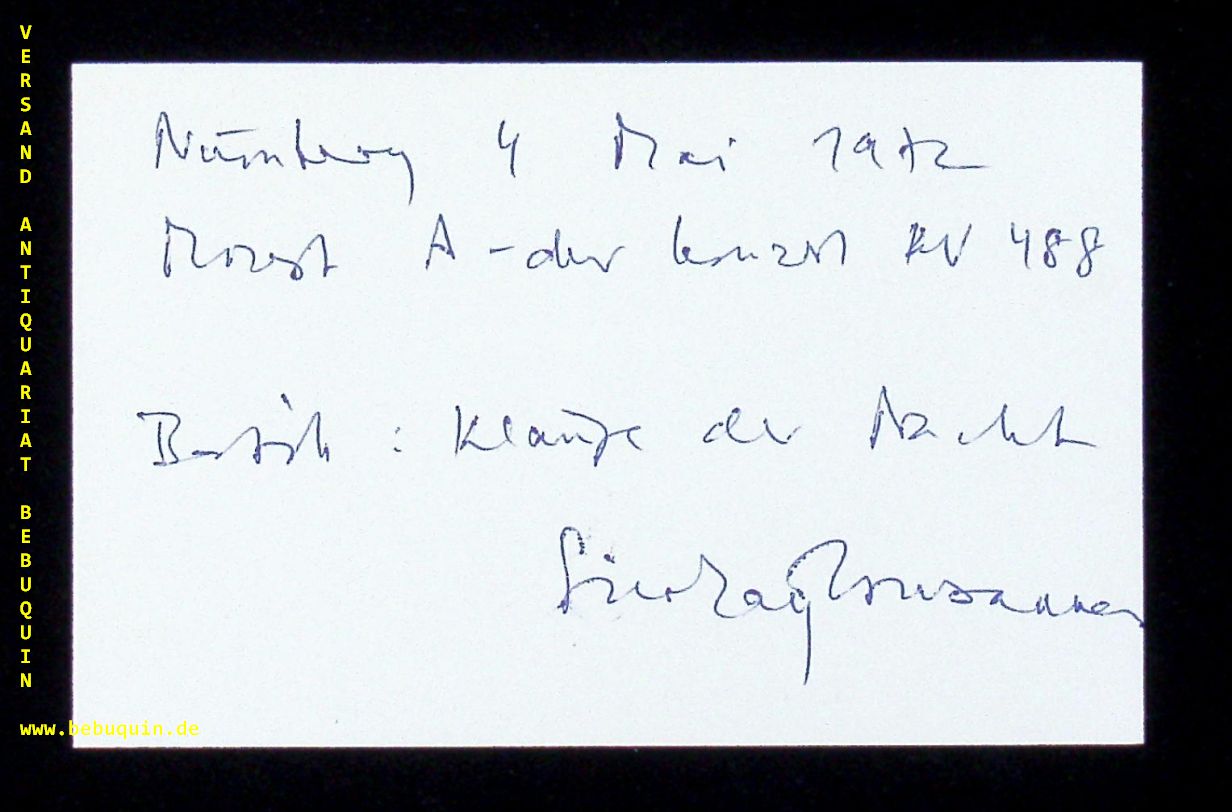 VERSAND ANTIQUARIAT BEBUQUIN
Nürnberg 4 Mai 1972
Mozart A-dur Konzert KV 488
Bartók : Klänge der Nacht
www.bebuquin.de